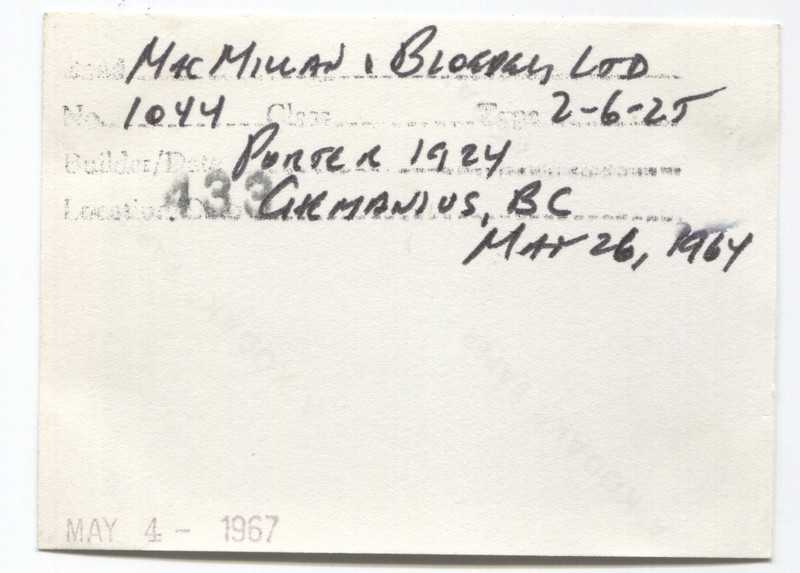 Road MacMillan & Bloedel, LTD
No. 1044 Class Type 2-6-2T
Builder/Date Porter 1924
Location/Date Chemanius, BC
433
May 26, 1964
KODAK
KODAK PAPER
KODAK
MAY 4 - 1967